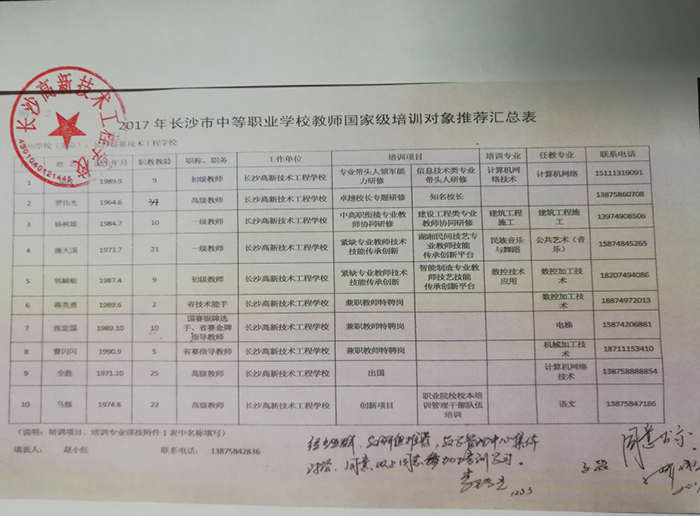 长沙高新技术工程学校
4301040121445
2017 年长沙市中等职业学校教师国家级培训对象推荐汇总表
长沙高新技术工程学校
职教教龄 职称、职务 工作单位 培训项目 培训专业 任教专业 联系电话
1 1989.9 9 初级教师 长沙高新技术工程学校 专业带头人领军能力研修 信息技术类专业带头人研修 计算机网络技术 计算机网络 15111319091
2 罗伟光 1964.6 高级教师 长沙高新技术工程学校 卓越校长专题研修 知名校长 13875860708
3 1984.7 10 一级教师 长沙高新技术工程学校 中高职衔接专业教师协同研修 建设工程类专业教师协同研修 建筑工程施工 建筑工程施工 13974908506
4 施天国 1973.7 21 一级教师 长沙高新技术工程学校 紧缺专业教师技术技能传承创新 湖湘民间技艺专业教师技能传承创新平台 民族音乐与舞蹈 公共艺术（音乐） 15874845265
5 1987.4 9 初级教师 长沙高新技术工程学校 紧缺专业教师技术技能传承创新 智能制造专业教师技艺技能传承创新平台 数控技术应用 数控加工技术 18207494086
6 蒋亮勇 1989.6 2 省技术能手 长沙高新技术工程学校 兼职教师特聘岗 数控加工技术 18874972013
7 1989.10 10 国赛银牌选手、省赛金牌指导教师 长沙高新技术工程学校 兼职教师特聘岗 电梯 15874206881
8 曹闪闪 1990.9 5 省赛指导教师 长沙高新技术工程学校 兼职教师特聘岗 机械加工技术 18711153410
9 1971.10 25 高级教师 长沙高新技术工程学校 出国 计算机网络技术 13875888854
10 1974.8 22 高级教师 长沙高新技术工程学校 创新项目 职业院校校本培训管理干部队伍培训 语文 13875847186
（说明：培训项目、培训专业须按附件 1 表中名称填写）
填表人： 赵小红 联系电话： 13875842836